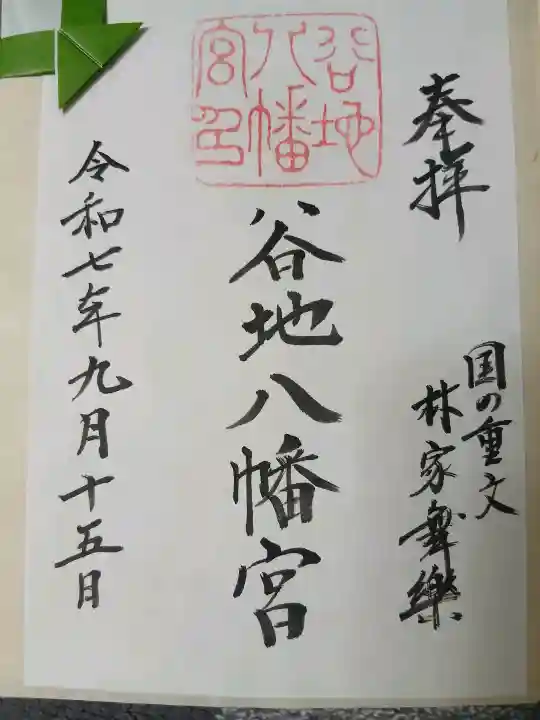 奉拝
国の重文
林家舞樂
谷地
八幡
宮印
谷地八幡宮
令和七年九月十五日